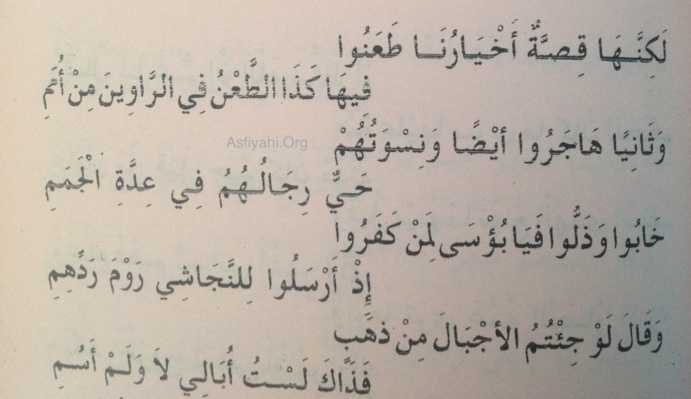 لَكِنَّهَا قِصَّةٌ أَخْيَارُنَا طَعَنُوا
فِيهَا كَذَا الطَّعْنُ فِي الرَّاوِينَ مِنْ أُمَمِ
Asfiyahi.Org
وَثَانِيًا هَاجَرُوا أَيْضًا وَنِسْوَتُهُمْ
حَيٌّ رِجَالُهُمُ فِي عِدَّةِ الْجَمَمِ
خَابُوا وَذَلُّوا فَيَا بُؤْسَى لِمَنْ كَفَرُوا
إِذْ أَرْسَلُوا لِلنَّجَاشِي رَوْمَ رَدِّهِمِ
وَقَالَ لَوْ جِئْتُمُ الأجْبَالَ مِنْ ذَهَبٍ
فَذَاكَ لَسْتُ أُبَالِي لاَ وَلَمْ أَسُمِ